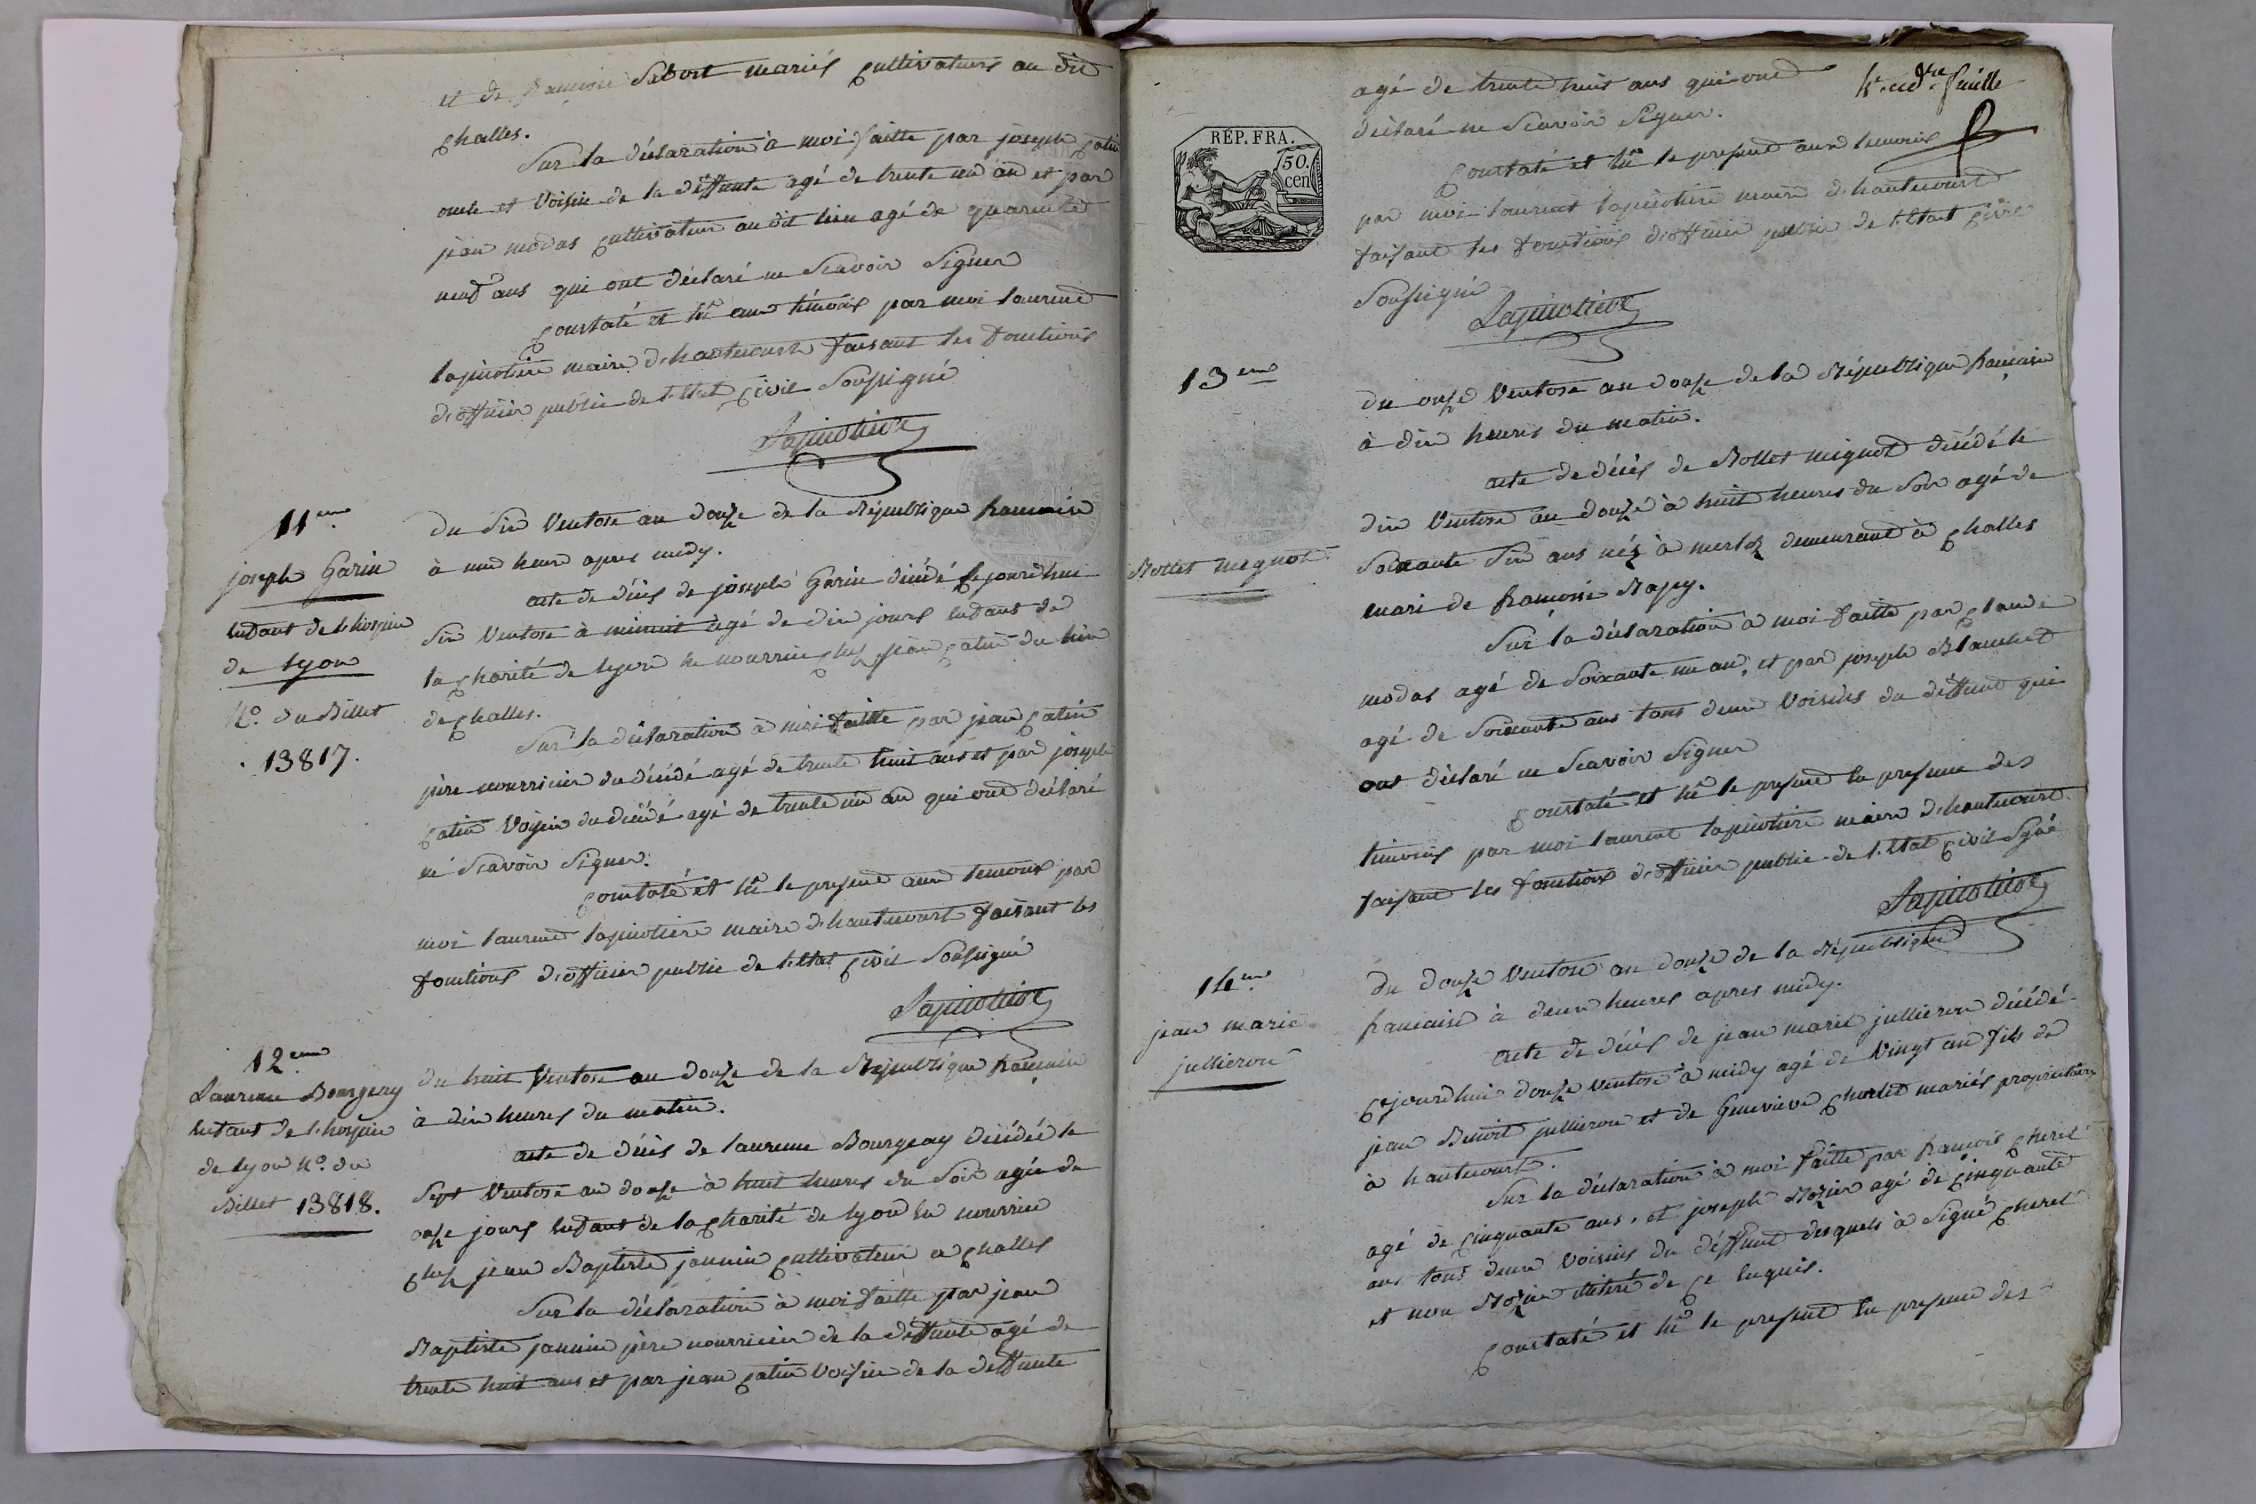 et de françoise Sibort mariés Cultivateurs au dit
Challes.
Sur la déclaration à moi faitte par joseph Catin
oncle et Voisin de la déffunte agé de trente un an et par
jean modas Cultivateur au dit lieu agé de quarante
neuf ans qui ont déclaré ne Scavoir Signer
Constaté et lu aux témoins par moi laurent
lapicotiere maire d'hautecourt faisant les fonctions
d'officier public de l'état Civil Soussigné
Lapicotiere
11eme
joseph Garin
enfant de l'hospice
de lyon
No. du Billet
13817.
du Six Ventose an douze de la République francaise
à une heure apres midy.
acte de décès de joseph Garin décédé Cejourd'hui
Six Ventose à minuit agé de dix jours enfant de
la Charité de lyon en nourrice chez jean Catin du lieu
de Challes.
Sur la déclaration à moi faitte par jean Catin
père nourricier du décédé agé de trente huit ans et par joseph
Catin Voisin du décédé agé de trente un an qui ont déclaré
ne Scavoir Signer.
Constaté et lu le present aux temoins par
moi laurent lapicotiere maire d'hautecourt faisant les
fonctions d'officier public de l'état Civil Soussigné
Lapicotiere
12eme
Laurence Bourgeay
enfant de l'hospice
de lyon No. du
Billet 13818.
du huit Ventose an douze de la République francaise
à dix heures du matin.
acte de décès de laurence Bourgeay décédée le
Sept Ventose an douze à huit heures du Soir agée de
onze jours enfant de la Charité de lyon en nourrice
chez jean Baptiste jannin Cultivateur a Challes
Sur la déclaration à moi faitte par jean
Baptiste jannin père nourricier de la déffunte agé de
trente huit ans et par jean Catin Voisin de la deffunte
feuille
agé de trente huit ans qui ont
déclaré ne Scavoir Signer.
RÉP. FRA.
50.
cen
Constaté et lu le present aux temoins
par moi laurent lapicotiere maire d'hautecourt
faisant les fonctions d'officier public de l'état Civil
Soussigné
Lapicotiere
13eme
Rollet mignot
du onze Ventose an douze de la République francaise
à dix heures du matin.
acte de décès de Rollet mignot décédé le
dix Ventose an douze à huit heures du Soir agé de
Soixante Six ans néz à merloz demeurant à Challes
mari de francoise Rapy.
Sur la déclaration à moi faitte par Claude
modas agé de Soixante un an, et par joseph Blanchet
agé de Soixante ans tous deux Voisins du déffunt qui
ont déclaré ne Scavoir Signer
Constaté et lu le present en presence des
témoins par moi laurent lapicotiere maire d'hautecourt
faisant les fonctions d'officier public de l'état Civil Sgné
Lapicotiere
14eme
jean marie
jullieron
du douze Ventose an douze de la République
francaise à deux heures apres midy.
acte de décès de jean marie jullieron décédé
Cejourd'hui douze Ventose à midy agé de Vingt an fils de
jean Benoit jullieron et de Genevieve Chorlet mariés propriétaires
à hautecourt.
Sur la déclaration à moi faitte par francois Cheret
agé de Cinquante ans, et joseph Rozier agé de Cinquante
ans tous deux Voisins du déffunt desquels à Signé Cheret
et non Rozier illitéré de Ce enquis.
Constaté et lu le present en presence des